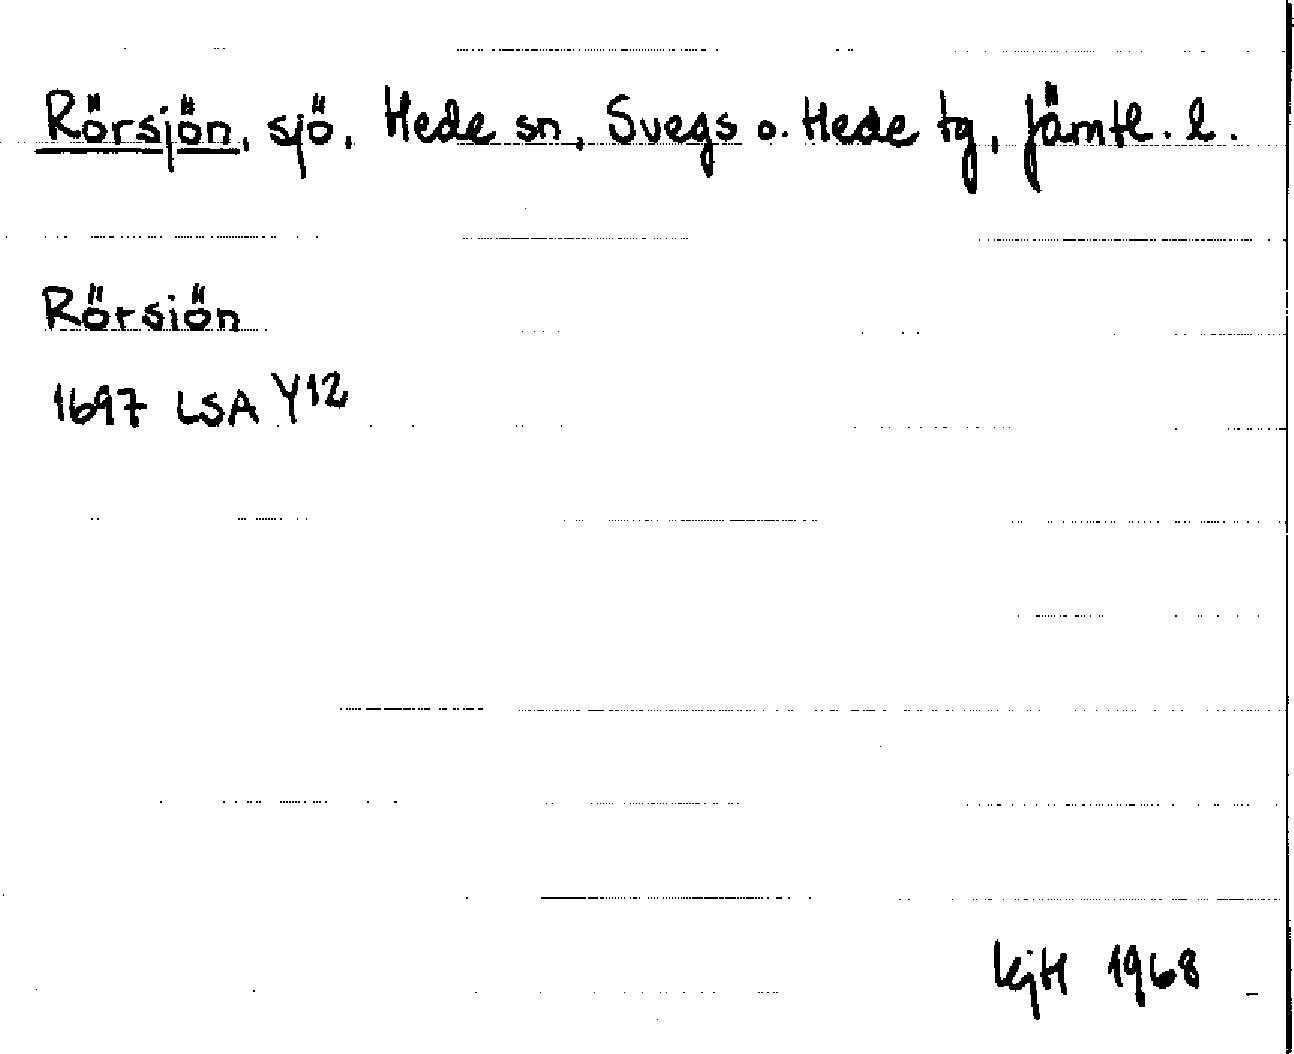 Rörsjön, sjö, Hede sn, Svegs o. Hede tg, Jämtl. l.
Rörsiön
1697 LSA Y12
KjH 1968